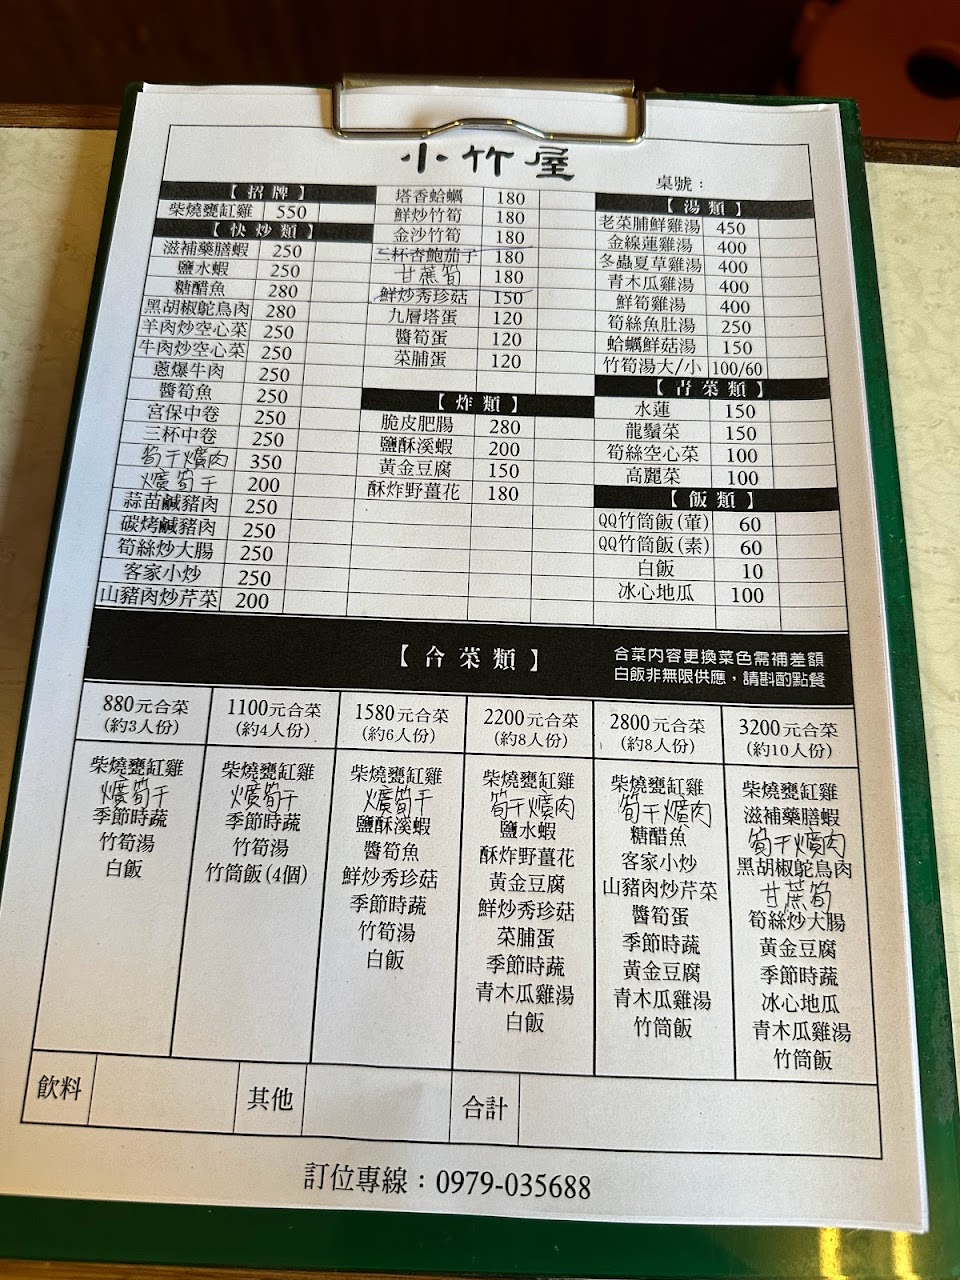 小竹屋
桌號：
【招牌】
柴燒甕缸雞 550
【快炒類】
滋補藥膳蝦 250
鹽水蝦 250
糖醋魚 280
黑胡椒鴕鳥肉 280
羊肉炒空心菜 250
牛肉炒空心菜 250
蔥爆牛肉 250
醬筍魚 250
宮保中卷 250
三杯中卷 250
筍干爌肉 350
爌筍干 200
蒜苗鹹豬肉 250
碳烤鹹豬肉 250
筍絲炒大腸 250
客家小炒 250
山豬肉炒芹菜 200
塔香蛤蠣 180
鮮炒竹筍 180
金沙竹筍 180
三杯杏鮑茄子 180
甘蔗筍 180
鮮炒秀珍菇 150
九層塔蛋 120
醬筍蛋 120
菜脯蛋 120
【炸類】
脆皮肥腸 280
鹽酥溪蝦 200
黃金豆腐 150
酥炸野薑花 180
【湯類】
老菜脯鮮雞湯 450
金線蓮雞湯 400
冬蟲夏草雞湯 400
青木瓜雞湯 400
鮮筍雞湯 400
筍絲魚肚湯 250
蛤蠣鮮菇湯 150
竹筍湯大/小 100/60
【青菜類】
水蓮 150
龍鬚菜 150
筍絲空心菜 100
高麗菜 100
【飯類】
QQ竹筒飯(葷) 60
QQ竹筒飯(素) 60
白飯 10
冰心地瓜 100
【合菜類】
合菜內容更換菜色需補差額
白飯非無限供應，請斟酌點餐
880元合菜
(約3人份)
柴燒甕缸雞
爌筍干
季節時蔬
竹筍湯
白飯
1100元合菜
(約4人份)
柴燒甕缸雞
爌筍干
季節時蔬
竹筍湯
竹筒飯(4個)
1580元合菜
(約6人份)
柴燒甕缸雞
爌筍干
鹽酥溪蝦
醬筍魚
鮮炒秀珍菇
季節時蔬
竹筍湯
白飯
2200元合菜
(約8人份)
柴燒甕缸雞
筍干爌肉
鹽水蝦
酥炸野薑花
黃金豆腐
鮮炒秀珍菇
菜脯蛋
季節時蔬
青木瓜雞湯
白飯
2800元合菜
(約8人份)
柴燒甕缸雞
筍干爌肉
糖醋魚
客家小炒
山豬肉炒芹菜
醬筍蛋
季節時蔬
黃金豆腐
青木瓜雞湯
竹筒飯
3200元合菜
(約10人份)
柴燒甕缸雞
滋補藥膳蝦
筍干爌肉
黑胡椒鴕鳥肉
甘蔗筍
筍絲炒大腸
黃金豆腐
季節時蔬
冰心地瓜
青木瓜雞湯
竹筒飯
飲料
其他
合計
訂位專線：0979-035688